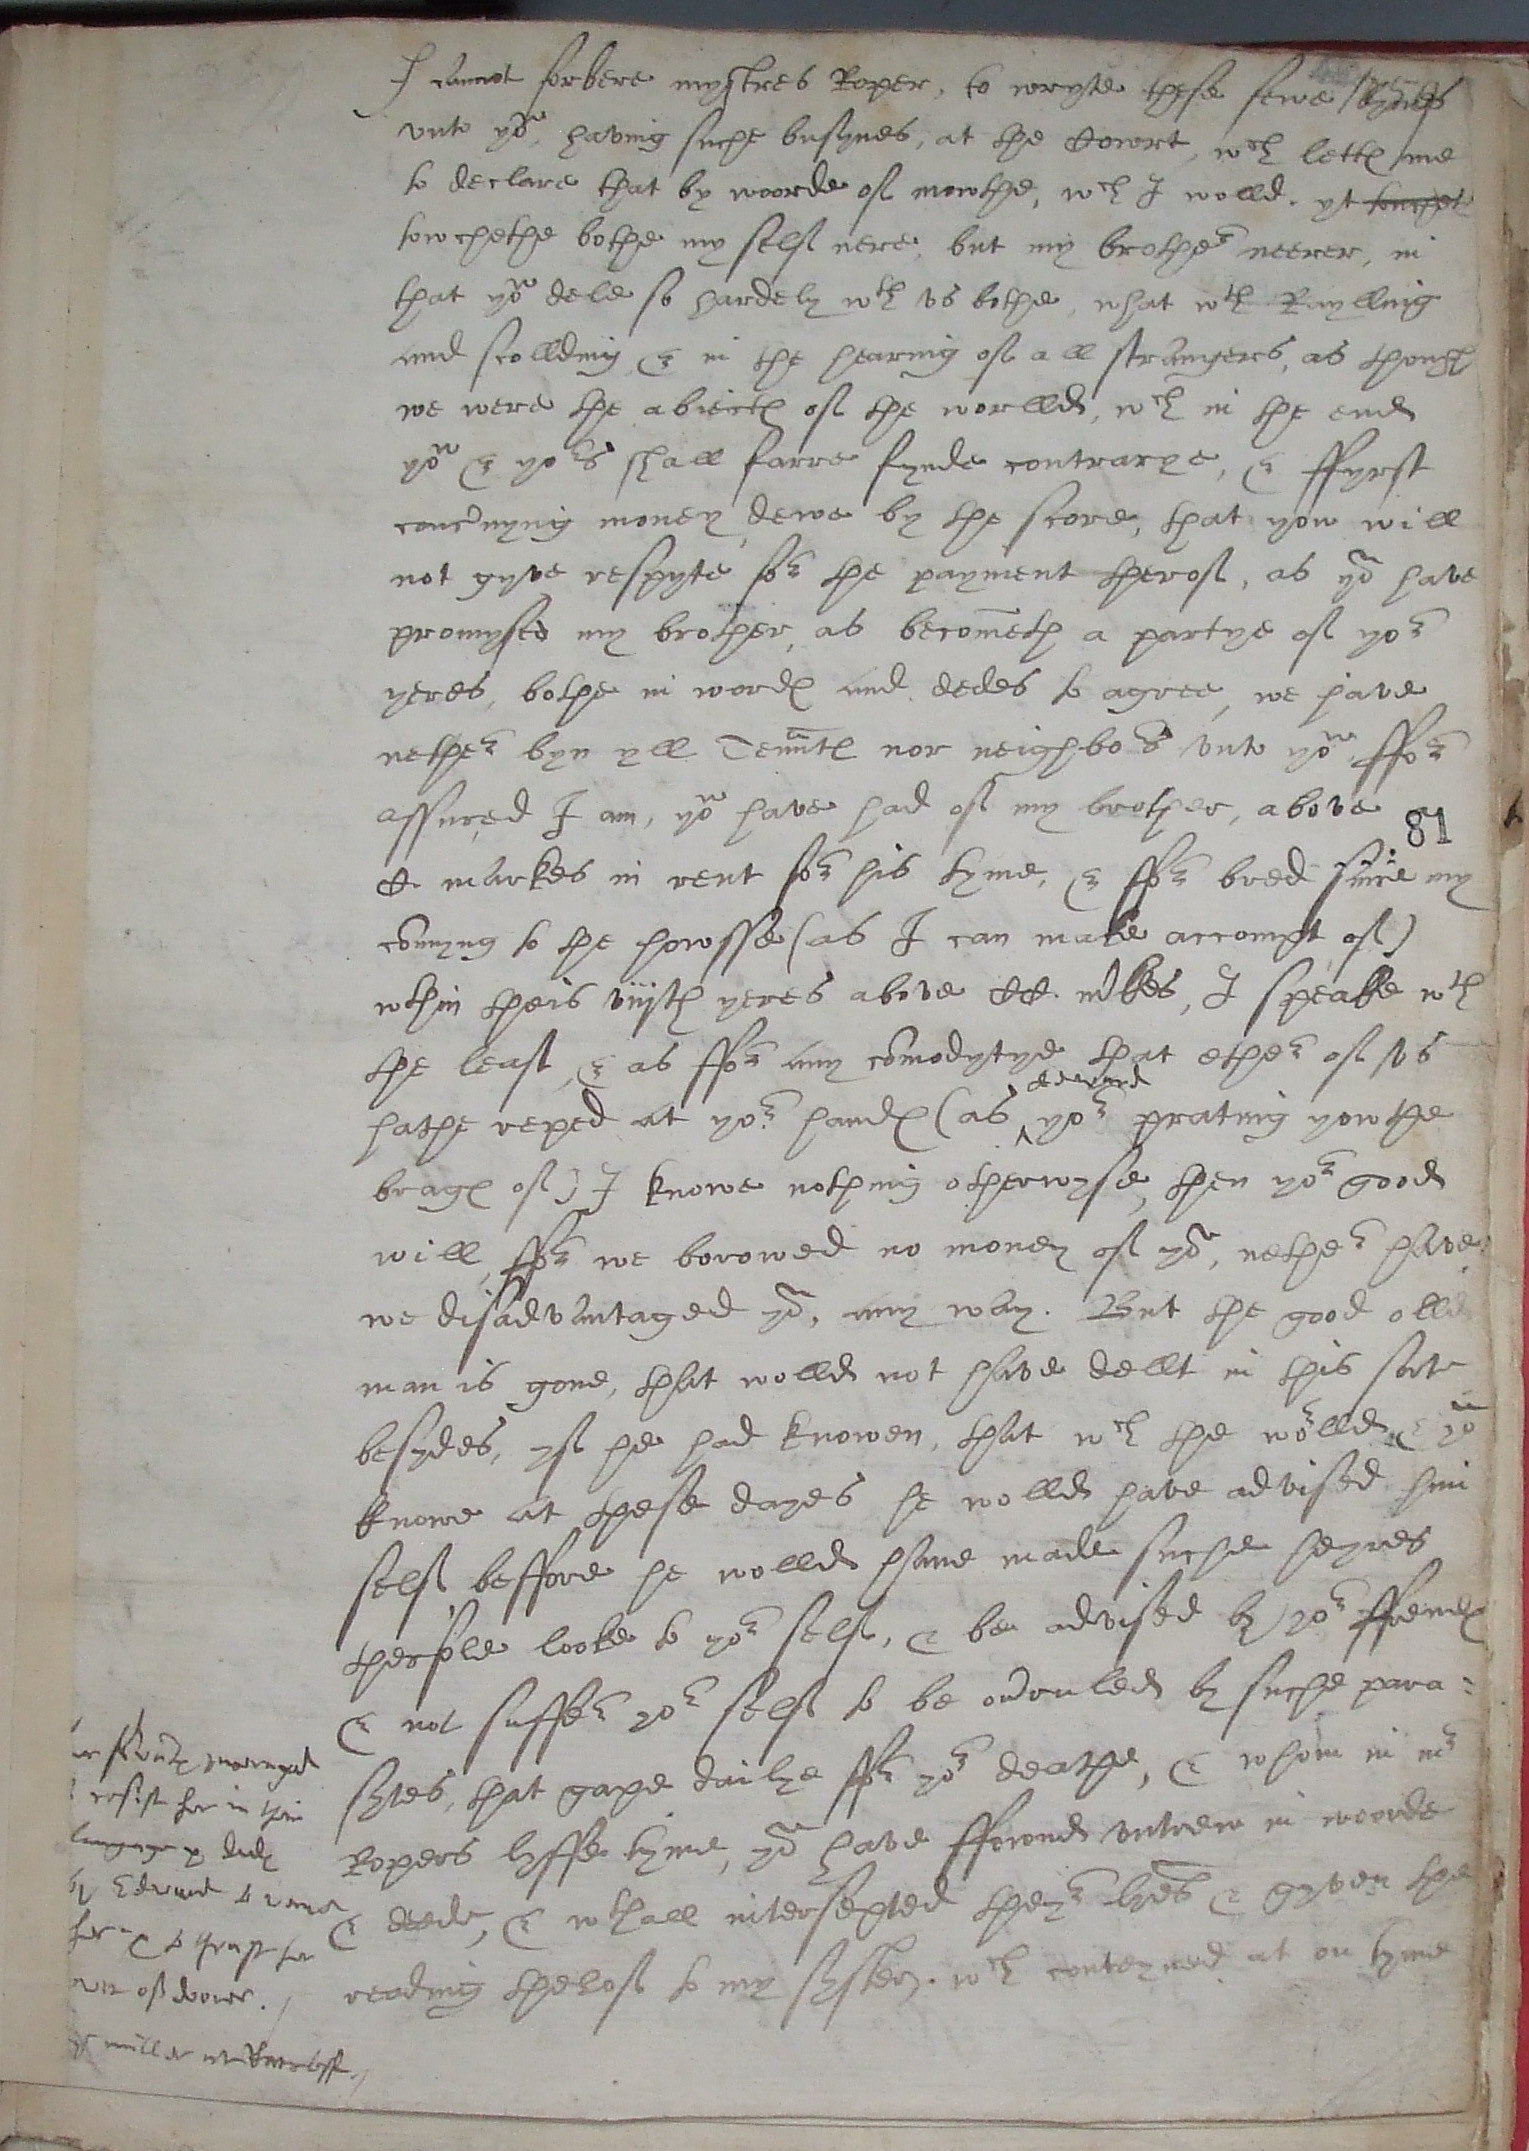 I cannot forbere mystres Roper, to wryte these fewe lynes
vnto yow, having suche busynes, at the Cowrt, wch lettes me
to declare that by woorde of mowthe, wch I wolld. yt touchet
towchethe bothe my self nere, but my brother neerer, in
that you dele so hardely wth vs bothe, what wth Raylling
and scollding & in the hearing of all strangers, as though
we were the abiectes of the worlld, wch in the end
you & yours shall farre fynde contrarye, & ffyrst
concernyng money dewe by the score, that yow will
not gyve respyte for the payment therof, as you have
promysed my brother, as becometh a partye of your
yeres, bothe in wordes and dedes to agree, we have
nether byn yll Tenauntes nor neighbors vnto you ffor
assured I am, you have had of my brother, above
C. markes in rent for his tyme, & ffor bred since my
comyng to the howsse (as I can make accompt of)
wthin theis viijth yeres above CC. mrkes, I speake wth
the least, & as ffor any comodytye that ether of vs
hathe reped at your handes (as edward your prating yowthe
brages of) I knowe nothing otherwyse, then your good
will, ffor we borowed no money of you, nether have
we disadvantaged you, any way. But the good olld
man is gone, that wolld not have dellt in this sorte
besydes, yf he had knowen, that wch the worlld & you
knowe at these dayes he wolld have advised him
self, beffore he wolld have made suche heyres
therfore looke to your self, & be advised by your ffrendes
& not suffer your self to be overruled by suche para=
sytes, that gape dailye ffor your deathe, & whom in mr
Ropers lyffe tyme, you have ffownd vntrew in woorde
& deede, & wthall intersepted theyr lettres & gyven the
reading therof to my syster. wch conteyned at on tyme
81
resist her in their
language
by Edward
her & to thrust her
out of doores.